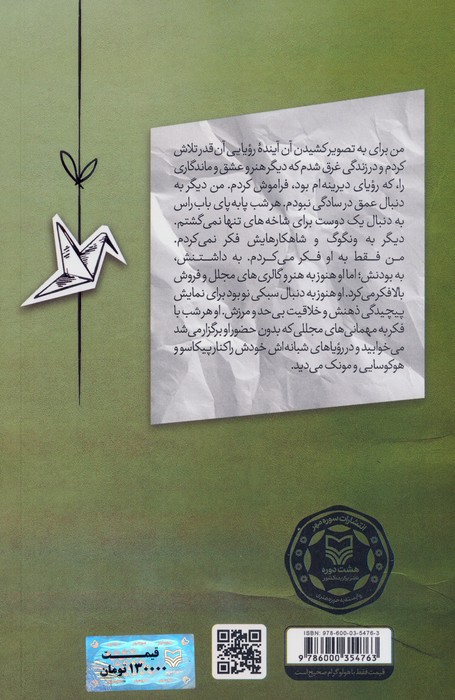 من برای به تصویر کشیدن آن آیندهٔ رؤیایی آن قدر تلاش
کردم و در زندگی غرق شدم که دیگر هنر و عشق و ماندگاری
را، که رؤیای دیرینه ام بود، فراموش کردم. من دیگر به
دنبال عمق در سادگی نبودم. هر شب پابه پای باب راس
به دنبال یک دوست برای شاخه های تنها نمی گشتم.
دیگر به ونگوگ و شاهکارهایش فکر نمی کردم.
من فقط به او فکر می کردم. به داشتنش،
به بودنش؛ اما او هنوز به هنر و گالری های مجلل و فروش
بالا فکر می کرد. او هنوز به دنبال سبکی نو بود برای نمایش
پیچیدگی ذهنش و خلاقیت بی حد و مرزش. او هر شب با
فکر به مهمانی های مجللی که بدون حضور او برگزار می شد
می خوابید و در رؤیاهای شبانه اش خودش را کنار پیکاسو و
هوکوسایی و مونک می دید.
انتشارات سوره مهر
هشت دوره
ناشر برگزیده کشور
ISBN: 978-600-03-5476-3
9 786000 354763
قیمت فقط با هولوگرام صحیح است
قیمت
۱۳۰۰۰۰ تومان